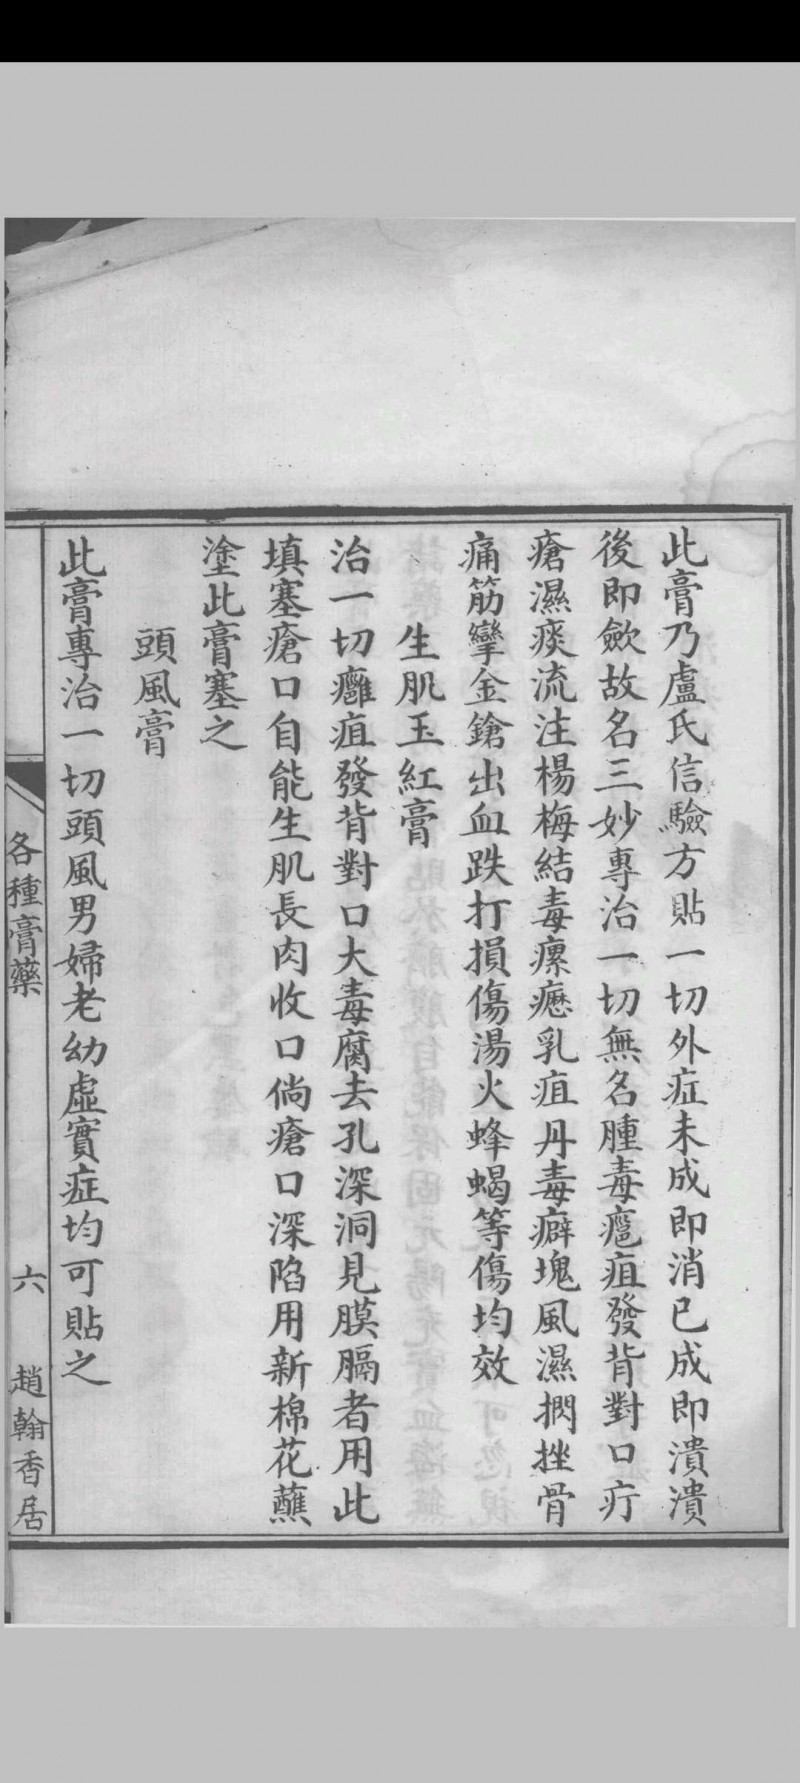 此膏乃盧氏信驗方貼一切外症未成即消已成即潰潰
後即歛故名三妙專治一切無名腫毒癰疽發背對口疔
瘡濕痰流注楊梅結毒瘰癧乳疽丹毒癖塊風濕挫骨
痛筋攣金鎗出血跌打損傷湯火蜂蝎等傷均效
生肌玉紅膏
治一切癰疽發背對口大毒腐去孔深洞見膜膈者用此
填塞瘡口自能生肌長肉收口倘瘡口深陷用新棉花蘸
塗此膏塞之
頭風膏
此膏專治一切頭風男婦老幼虛實症均可貼之
各種膏藥
六
趙翰香居